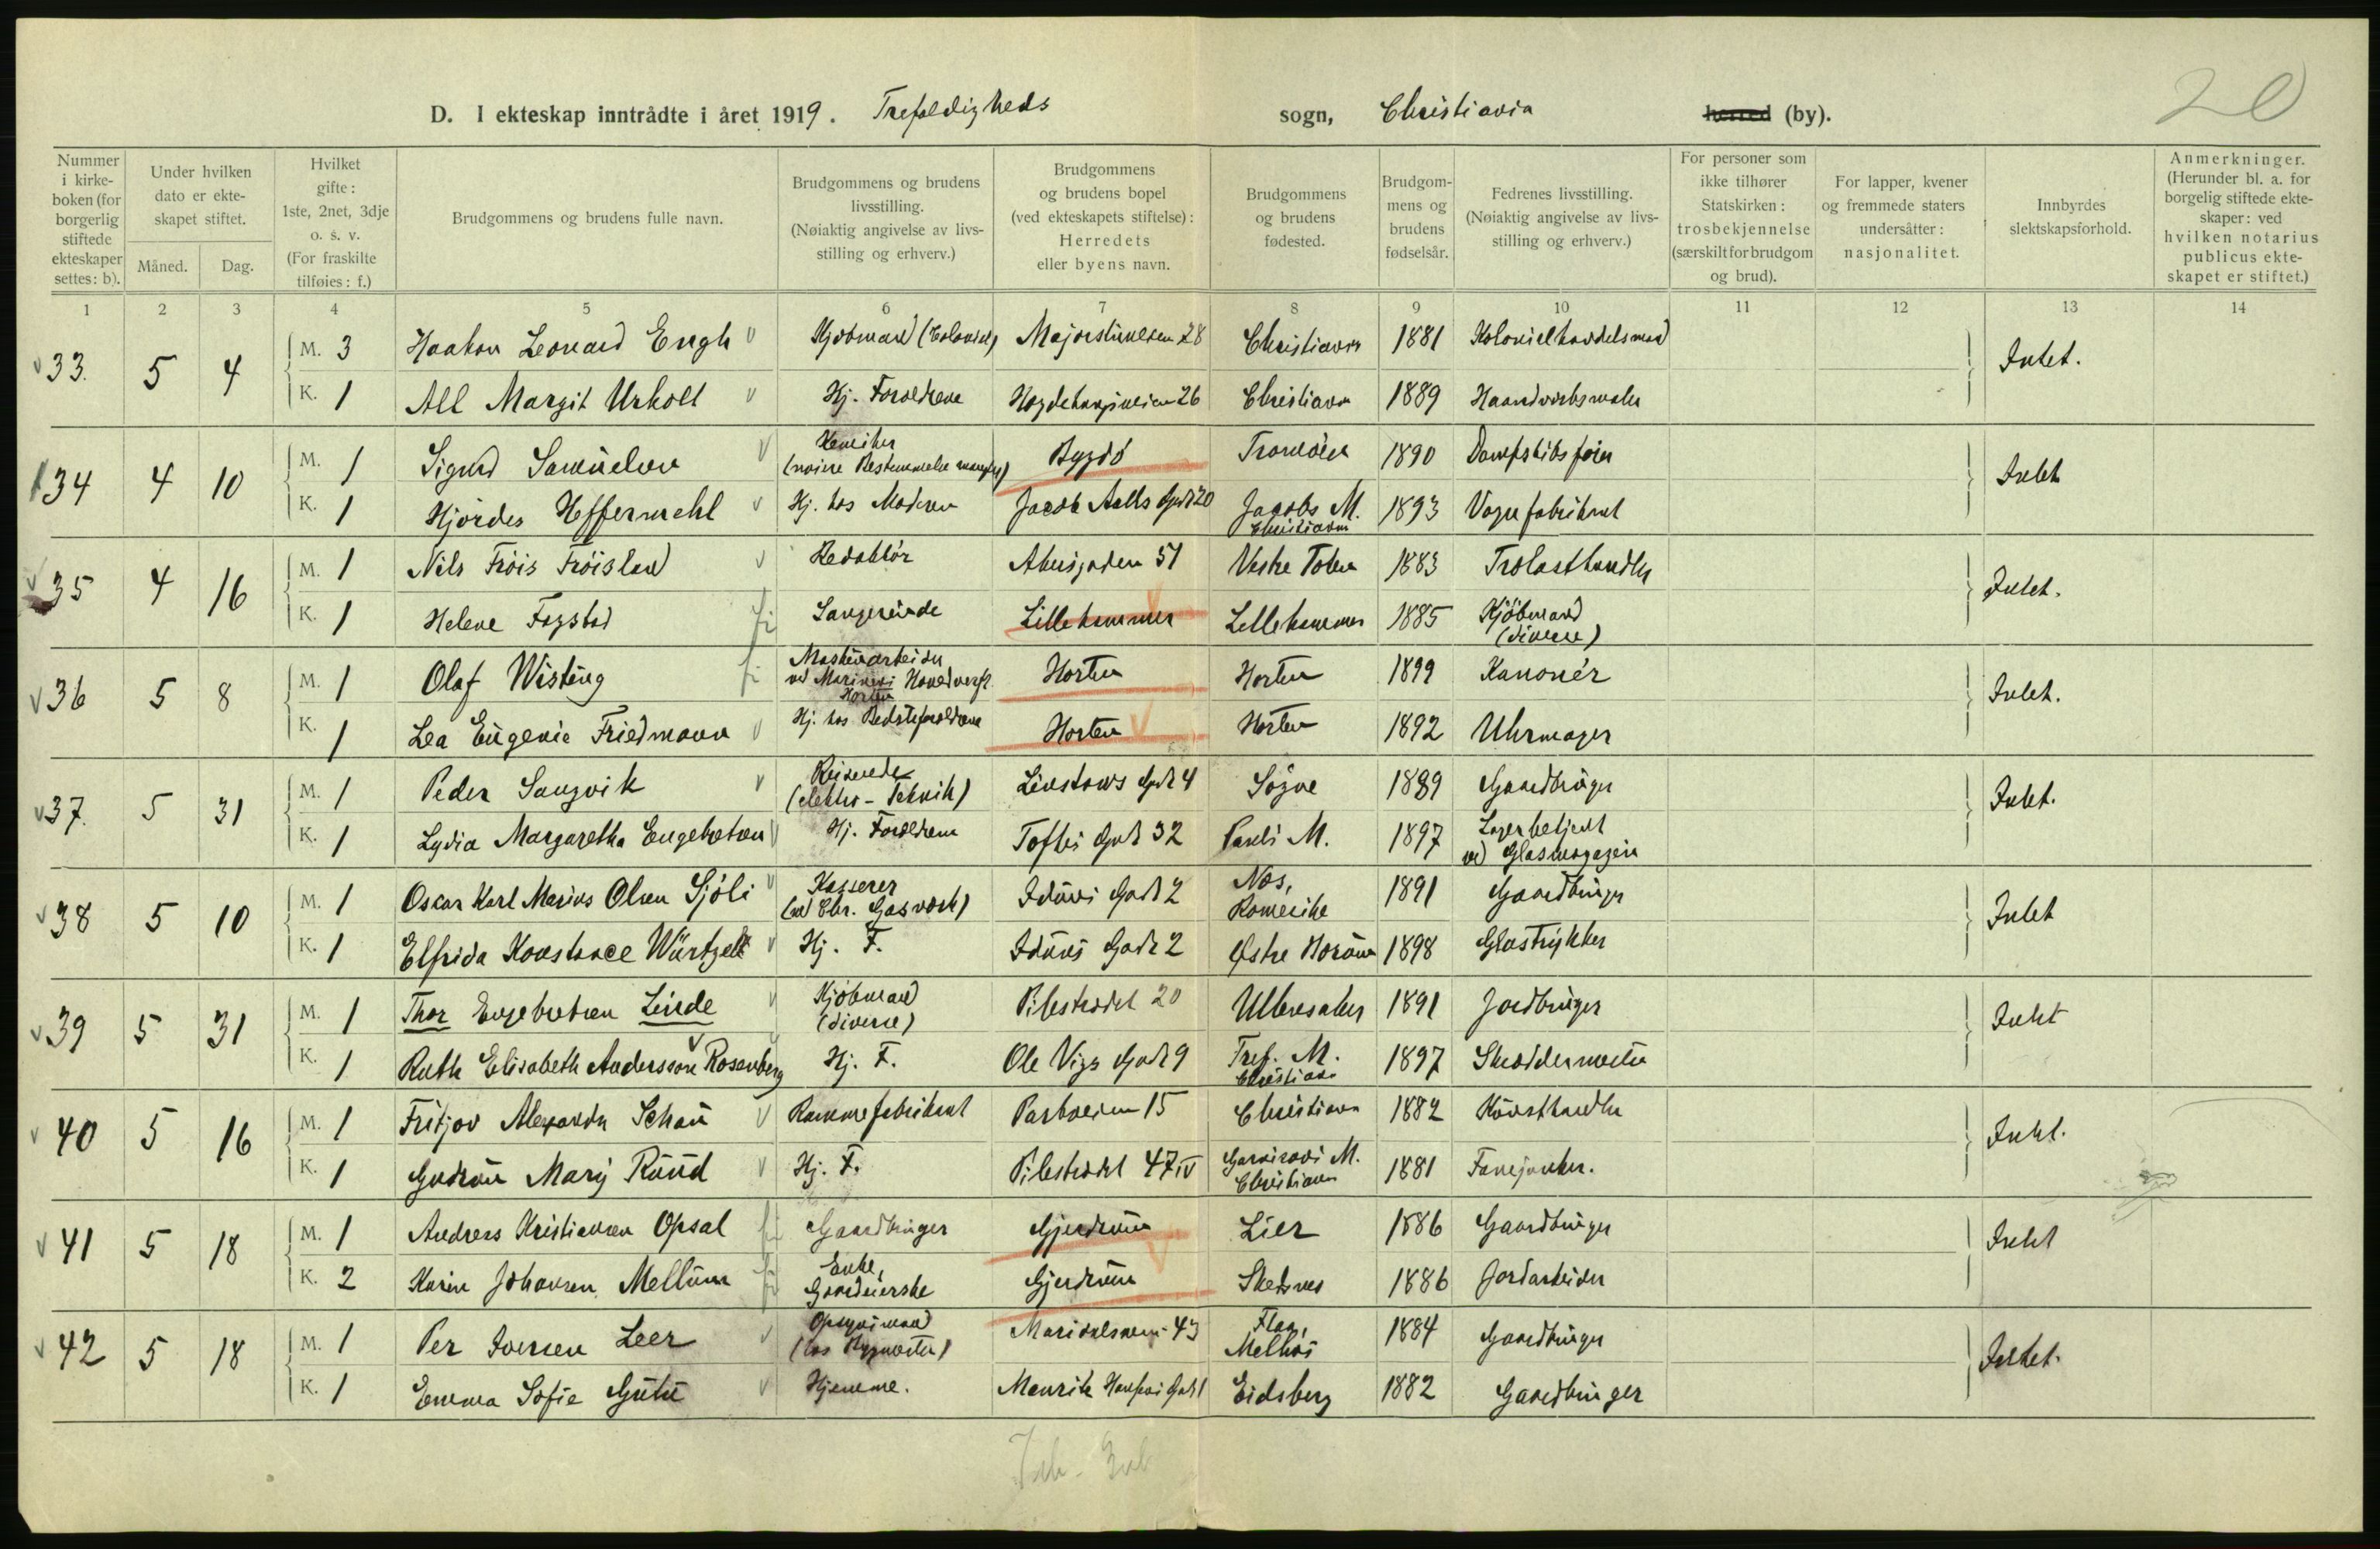 20
D. I ekteskap inntrådte i året 1919. Trefoldigheds sogn, Christiania herred (by).
Nummer i kirkeboken (for borgerlig stiftede ekteskaper settes: b).
Under hvilken dato er ekteskapet stiftet.
Måned. Dag.
Hvilket gifte: 1ste, 2net, 3dje o. s. v. (For fraskilte tilføies: f.)
Brudgommens og brudens fulle navn.
Brudgommens og brudens livsstilling. (Nøiaktig angivelse av livsstilling og erhverv.)
Brudgommens og brudens bopel (ved ekteskapets stiftelse): Herredets eller byens navn.
Brudgommens og brudens fødested.
Brudgommens og brudens fødselsår.
Fedrenes livsstilling. (Nøiaktig angivelse av livsstilling og erhverv.)
For personer som ikke tilhører Statskirken: trosbekjennelse (særskilt for brudgom og brud).
For lapper, kvener og fremmede staters undersåtter: nasjonalitet.
Innbyrdes slektskapsforhold.
Anmerkninger. (Herunder bl. a. for borgelig stiftede ekteskaper: ved hvilken notarius publicus ekteskapet er stiftet.)
1 2 3 4 5 6 7 8 9 10 11 12 13 14
33. 5 4 M. 3 Haakon Leonard Engh Kjøbmand (Colonial) Majorstuveien 28 Christiania 1881 Kolonialhandelsmand Intet.
K. 1 All Margit Urholt Hj. Forældrene Hegdehaugsveien 26 Christiania 1889 Haandverksmaler
34 4 10 M. 1 Sigurd Samuelsen Kemiker (nøiere Bestemmelse mangler) Bygdö Tromöen 1890 Dampskibsfører Intet
K. 1 Hjördes Heffermehl Hj. hos Moderen Jacob Aalls Gade 20 Jacobs M. Christiania 1893 Vognfabrikant
35 4 16 M. 1 Nils Fröis Fröisland Redaktör Akersgaden 51 Vestre Toten 1883 Trælasthandler Intet.
K. 1 Helene Fagstad Sangerinde Lillehammer Lillehammer 1885 Kjöbmand (diverse)
36 5 8 M. 1 Olaf Wisting Maskinarbeider ved Marinens Hovedverft Horten Horten Horten 1899 Kanonér Intet.
K. 1 Lea Eugenie Friedmann Hj. hos Bedsteforældrene Horten Horten 1892 Uhrmager
37. 5 31 M. 1 Peder Sangvik Reisende (elektro-Teknik) Linstows Gade 4 Sögne 1889 Gaardbruger Intet.
K. 1 Lydia Margaretha Engebretsen Hj. Forældrene Toftes Gade 32 Pauls M. 1897 Lagerbetjent ved Glasmagazin
38 5 10 M. 1 Oscar Karl Marius Olsen Sjöli Kasserer (ved Chr. Gasværk) Iduns Gade 2 Nes, Romerike 1891 Gaardbruger Intet
K. 1 Elfrida Konstance Würtzell Hj. F. Iduns Gade 2 Østre Moræne 1898 Glastrykker
39 5 31 M. 1 Thor Engebretsen Linde Kjöbmand (diverse) Pilestrædet 20 Ullensaker 1891 Jordbruger Intet
K. 1 Ruth Elisabeth Anderssøn Rosenberg Hj. F. Ole Vigs Gade 9 Tref. M. Christiania 1897 Skræddermester
40 5 16 M. 1 Fritjov Alexander Schau Rammefabrikant Parkveien 15 Christiania 1882 Kunsthandler Intet.
K. 1 Gudrun Mary Ruud Hj. F. Pilestrædet 47 IV Garnisons M. Christiania 1881 Fanejunker.
41 5 18 M. 1 Andreas Kristiansen Opsal Gaardbruger Gjerdrum Lier 1886 Gaardbruger Intet
K. 2 Karen Johansen Mellum Enke, Gaardeierske Gjerdrum Skedsmo 1886 Jordarbeider
42 5 18 M. 1 Per Iversen Leer Opsynsmand (hos Bygmester) Maridalsveien 43 Flaa, Melhus 1884 Gaardbruger Intet.
K. 1 Emma Sofie Gutu Hjemme. Mauritz Hansens Gade 1 Eidsberg 1882 Gaardbruger